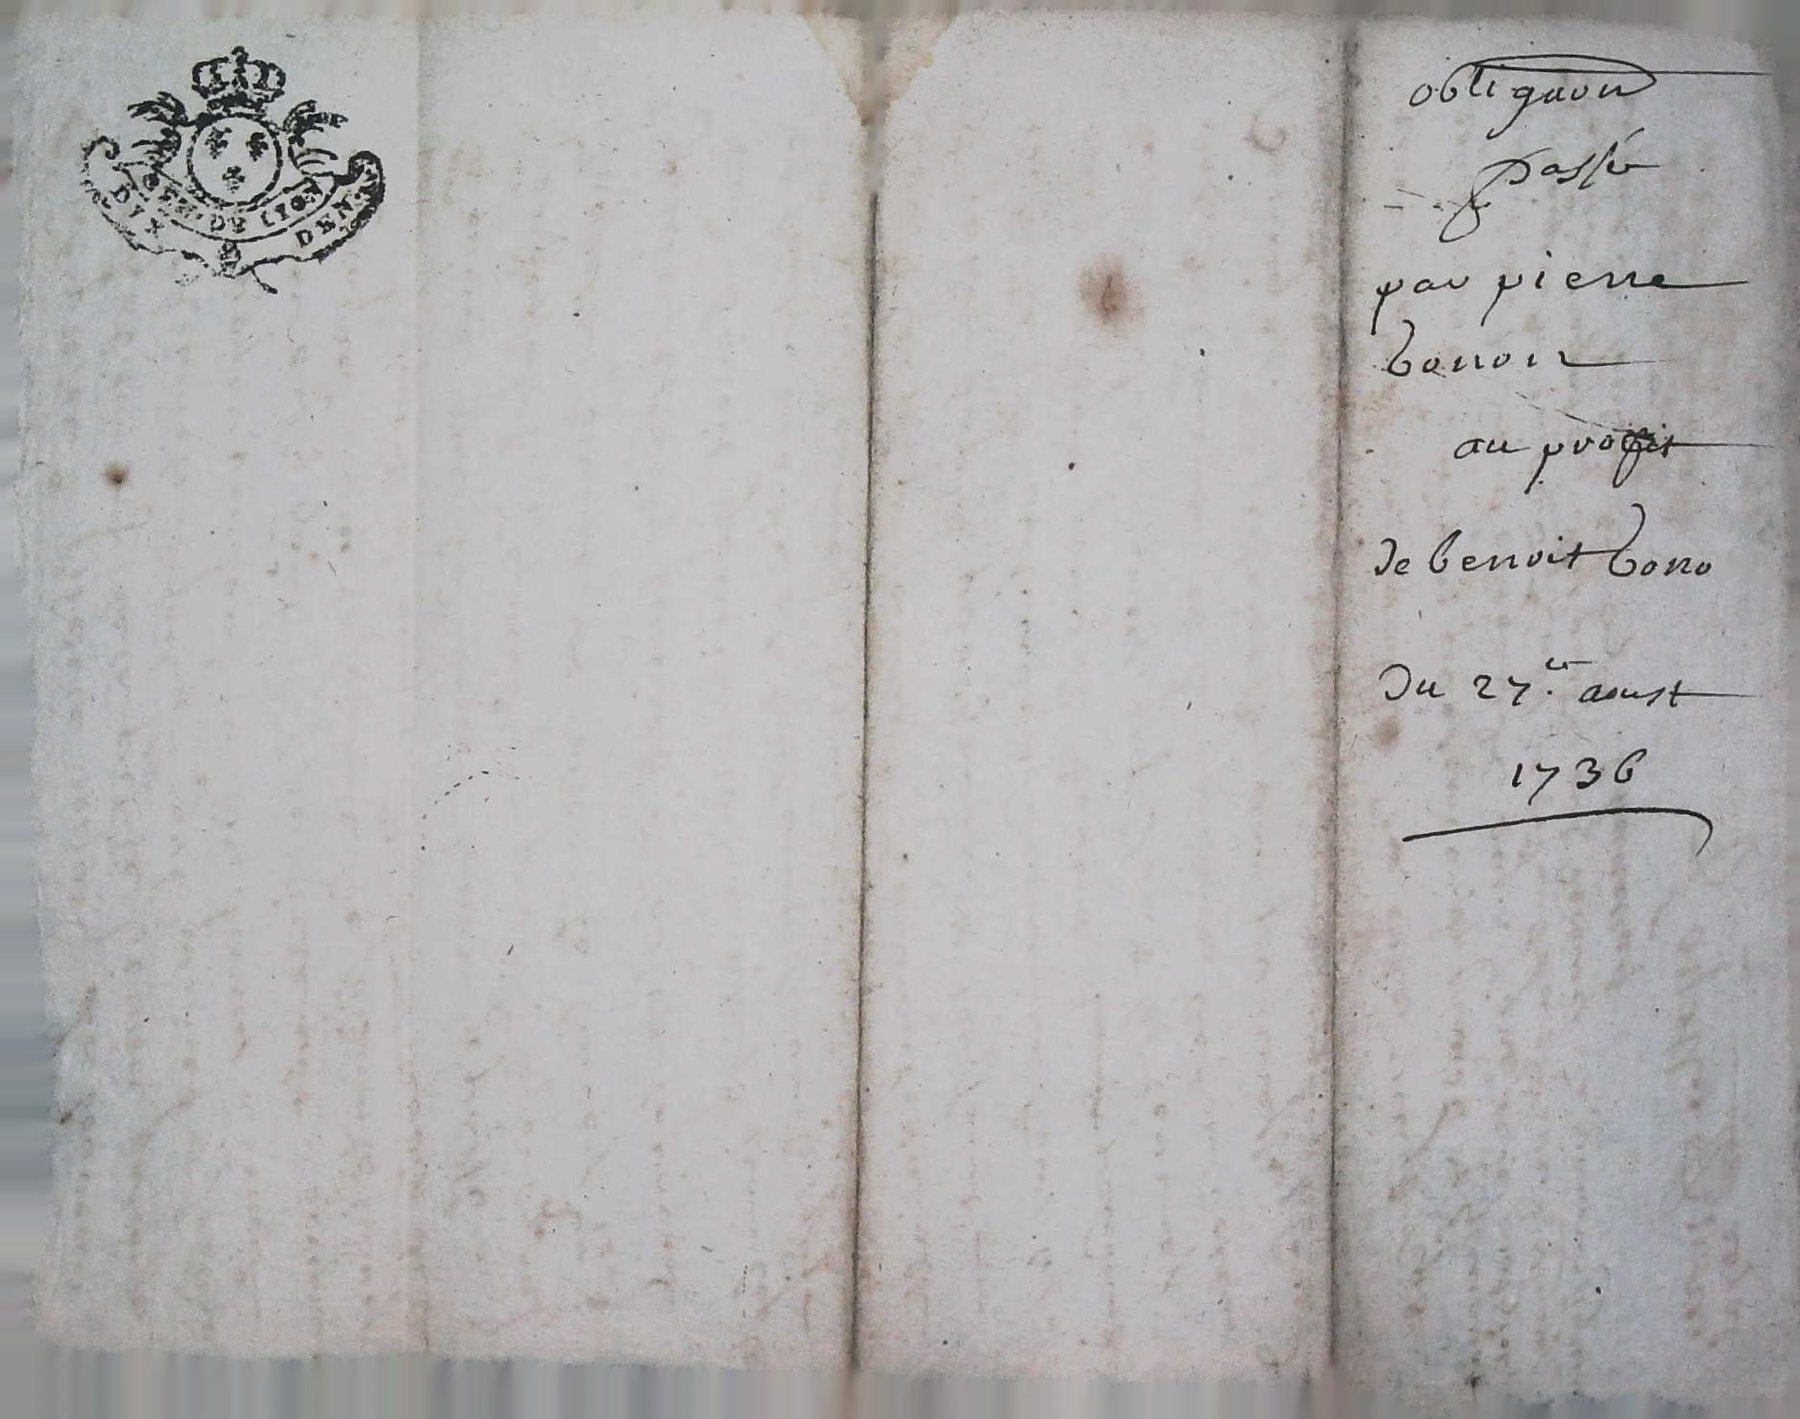 GEN. DE LION
DIX DEN.
obligaon
passé
par pierre
bonon
au profit
de benoit bono
du 27.e aoust
1736